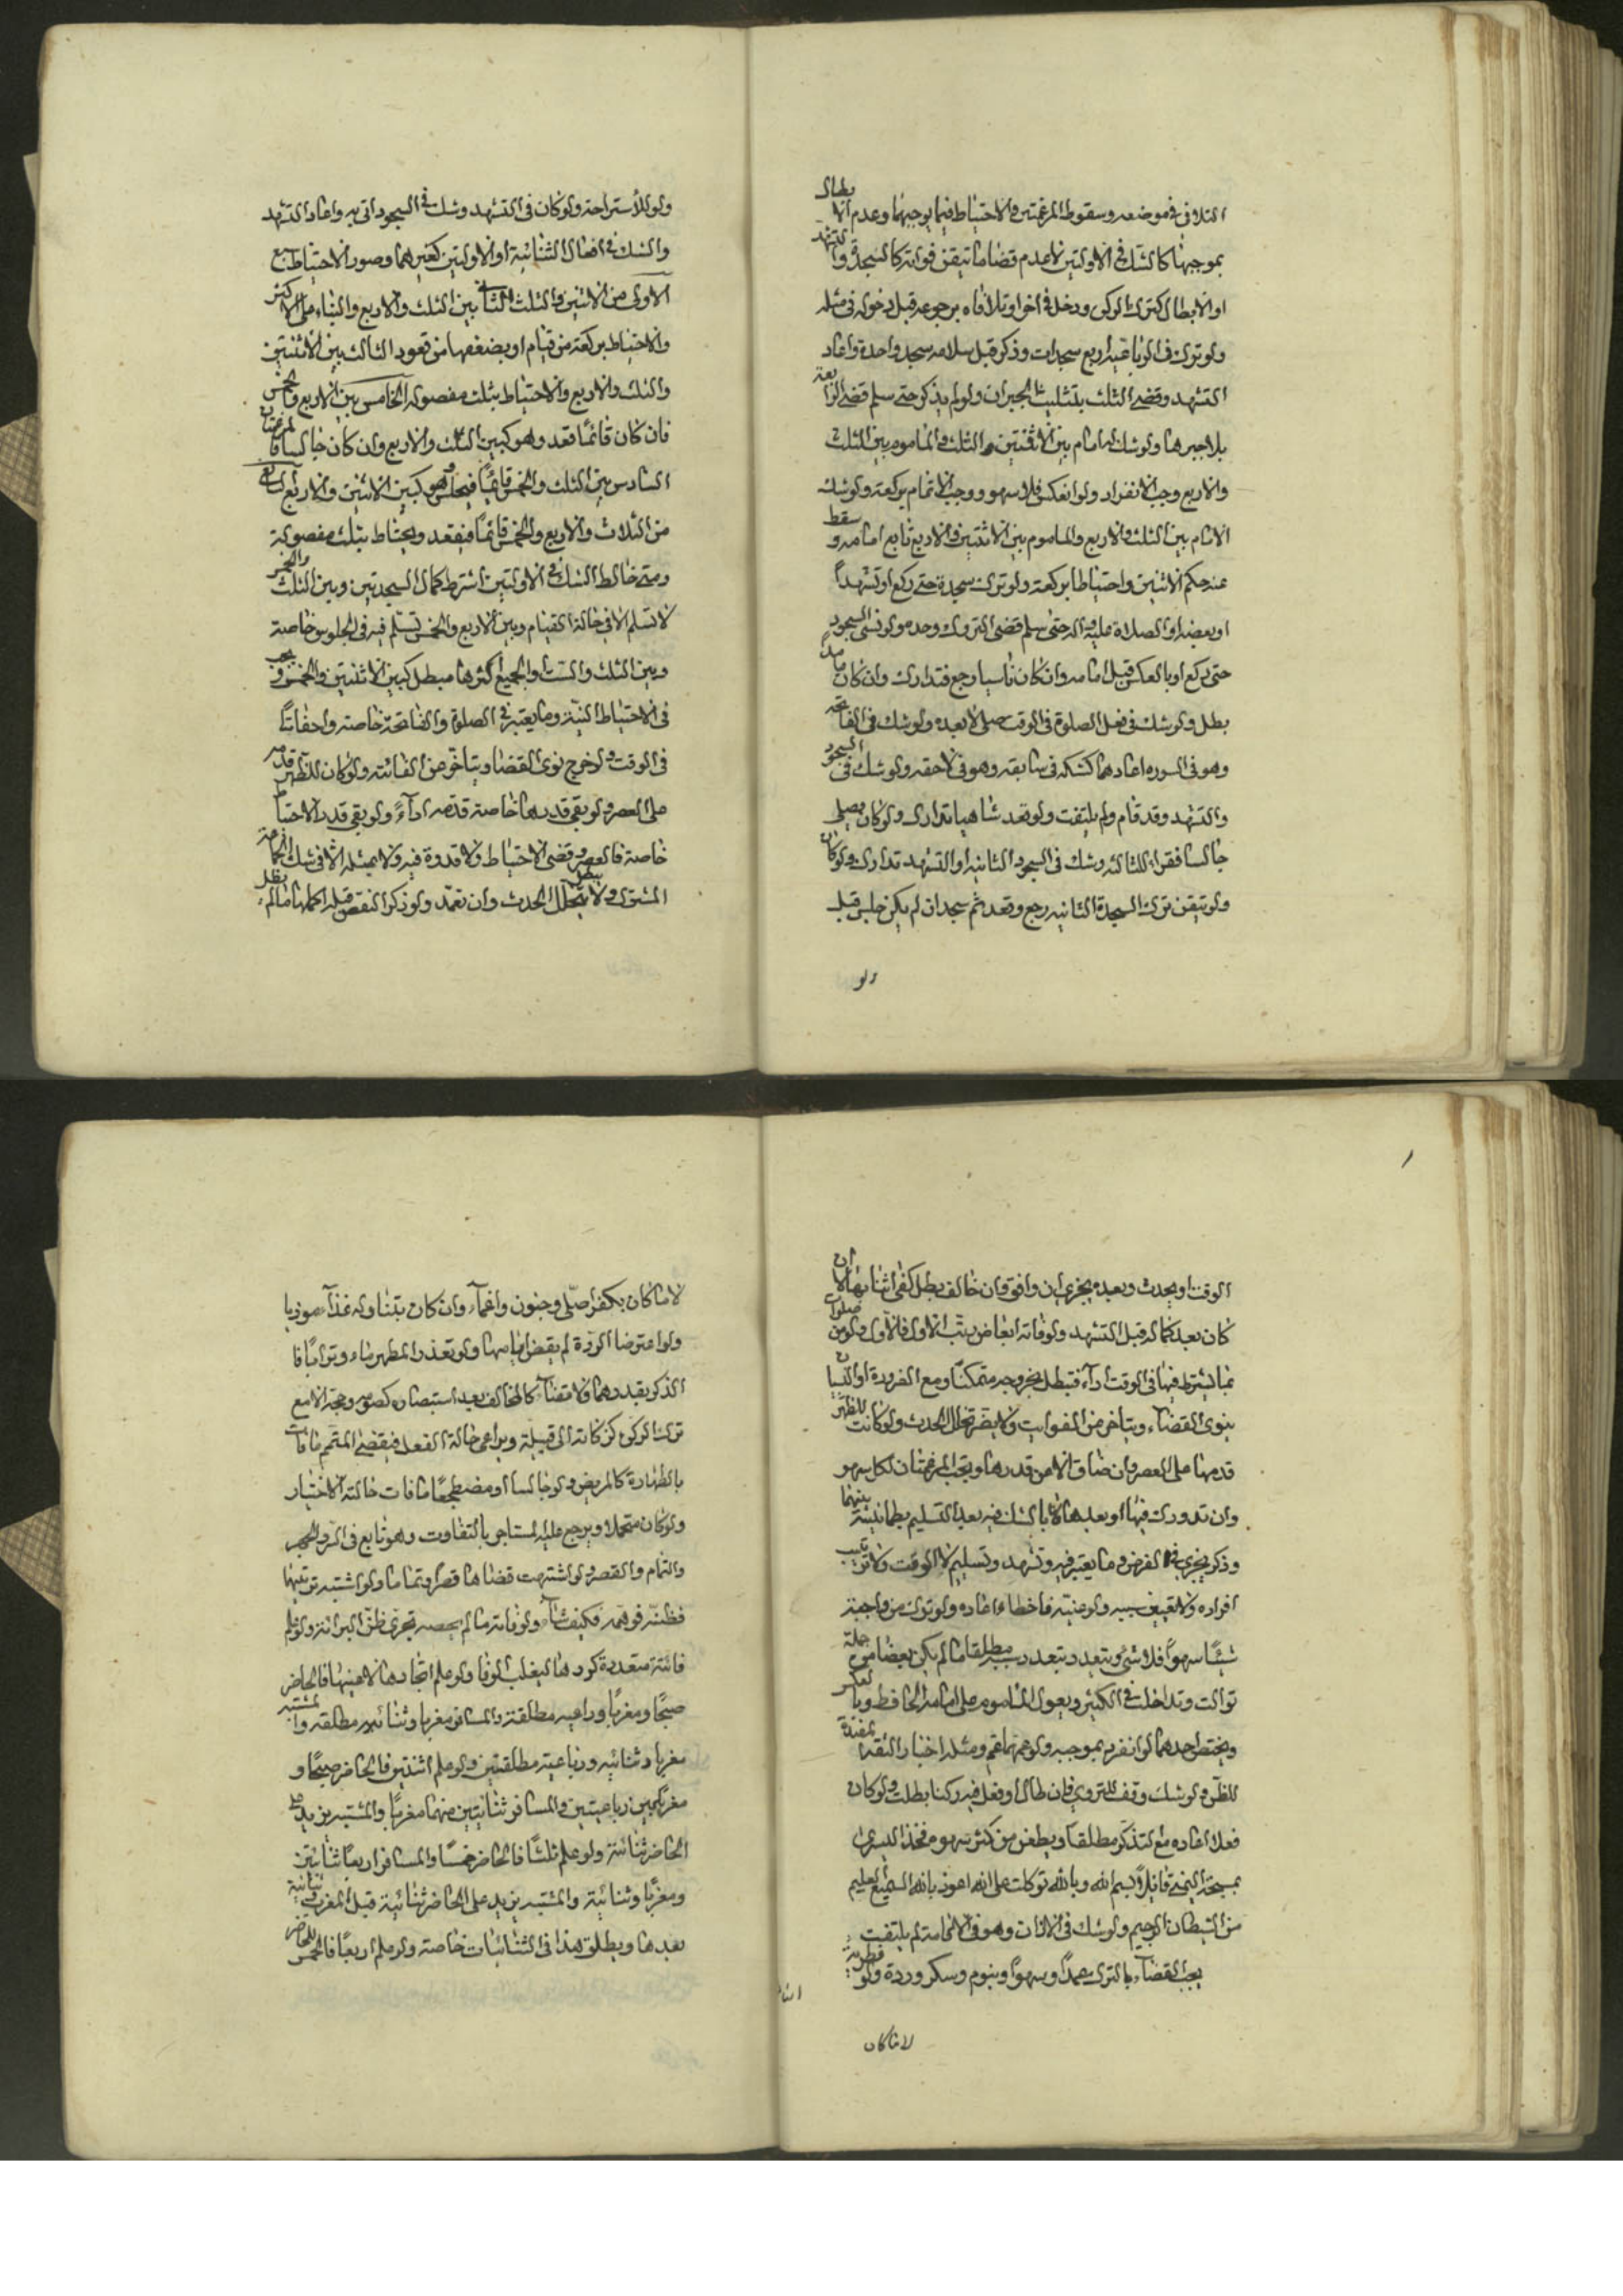 التلافى فى موضعه وسقوط المرغمتين والاحتياط فيما يوجبهما وعدم الابطال
بموجبها كالشك فى الاولتين لا عدم قضا ما تيقن فواته كالسجدة والتشهد
او الابطال كترك الركن ودخل فى اخر او تلافاه برجوعه قبل دخوله فى مثله
ولو ترك فى الرباعية اربع سجدات وذكر قبل سلامه سجد واحدة واعاد
التشهد وقضى الثلث بتثليث الجبران ولو لم يذكر حتى سلم قضى الرابعة
بلا جبرها ولو شك الامام بين الاثنتين والثلث والماموم بين الثلث
والاربع وجب الانفراد ولو انعكس فلا سهو ووجب الاتمام بركعة ولو شك
الامام بين الثلث والاربع والماموم بين الاثنتين والاربع تابع امامه وسقط
عنه حكم الاثنين واحتياطا بركعة ولو ترك سجدة حتى ركع او تشهدا
او بعضه او الصلاة عليه واله حتى سلم قضى المتروك وحده ولو نسى السجود
حتى ركع او بالعكس قبل امامه وان كان ناسيا رجع فتدارك وان كان عامدا
بطل ولو شك فى فعل الصلوة فى الوقت صلى لا بعده ولو شك فى الفاتحة
وهو فى السورة اعادهما كشكه فى سابقه وهو فى لاحقه ولو شك فى السجود
والتشهد وقد قام ولم يلتفت ولو قعد ساهيا تدارك ولو كان يصلى
جالسا فقراء للثالثة وشك فى السجود الثانية او التشهد تدارك ولو كان
ولو تيقن ترك السجدة الثانية رجع وقعد ثم سجد ان لم يكن جلس قبل
ولو
ولو للاستراحة ولو كان فى التشهد وشك فى السجود اتى به واعاد التشهد
والشك فى افعال الثنائية او الاولتين كغيرهما وصور الاحتياط سبع
الاولى من الاثنين والثلث الثانى بين الثلث والاربع والبناء على الاكثر
والاحتياط بركعة من قيام او بضعفها من قعود الثالث بين الاثنتين
والثلث والاربع والاحتياط بثلث مفصولة الخامس بين الاربع والخمس
فان كان قائما قعد وهو كبين الثلث والاربع وان كان جالسا فالمرغمتان
السادس بين الثلث والخمس قائما فيجلس وهو كبين الاثنين والاربع السابع
من الثلاث والاربع والخمس قائما فيقعد ويحتاط بثلث مفصولة
ومتى خالط الشك فى الاولتين اشترط كمال السجدتين وبين الثلث والخمس
لا تسلم الا فى حالة القيام وبين الاربع والخمس تسلم فيه فى الجلوس خاصة
وبين الثلث والست والجميع اكثرها مبطل كبين الاثنتين والخمس ويجب
فى الاحتياط النية وما يعتبر فى الصلوة والفاتحة خاصة واحفاتا
فى الوقت ولو خرج نوى القضا ويتاخر عن الفائتة ولو كان للظهر قدمه
على العصر ولو بقى قدرهما خاصة قدمه اداء ولو بقى قدر الاحتياط
خاصة فالعصر وقضى الاحتياط ولا قدوة فيه ولا بمثله الا فى شك الجماعة
المشترك ولا يبطل بتخلل الحدث وان تعمد ولو ذكر النقص قبله اكملها ما لم يطل
الوقت او يحدث وبعده يجزى ان وافق وان خالف بطل كفى اثنائها الا ان
كان بعد كماله قبل التشهد ولو فاته ابعاض رتب الاول فالاول ولو من صلوات
بما يشترط فيها فى الوقت اداء فتبطل بخروجه متمكنا ومع الضرورة او النسيان
ينوى القضاء ويتاخر من الفوايت ولا يضر تخلل الحدث ولو كانت للظهر
قدمها على العصر وان ضاق الا عن قدرها ويجب المرغمتان لكل سهو
وان تدورك فيها او بعدها لا بالشك فيه بعد التسليم بطمانينة بينهما
وذكر يجزى فى الفرض وما يعتبر فيه وتشهد وتسليم لا الوقت ولا ترتيب
افراده ولا تعيين سببه ولو عينه فاخطاء اعاده ولو ترك من واجبة
شيئا سهوا فلا شئ ويتعدد بتعدد سببه مطلقا ما لم يكن بعضا من جملة
توالت وتداخل فى الكثير ويعول الماموم على امامه الحافظ وبالعكس
ويختص احدهما لو انفرد بموجبه ولو عمهما عم ومثله اخبار الثقة المفيدة
للظن ولو شك وقف للتروى فان طال او فعل فيه ركنا بطلت ولو كان
فعلا اعاده مع التذكر مطلقا ويطعن من كثر سهوه فخذه اليسرى
بمسبحة اليمنى قايلا بسم الله وبالله توكلت على الله اعوذ بالله السميع العليم
من الشيطان الرجيم ولو شك فى الاذان وهو فى الاقامة لم يلتفت
يجب القضاء بالترك عمدا وسهوا وبنوم وسكر وردة ولو فطرية
لا ما كان
لا ما كان بكفر اصلى وجنون واغماء وان كان بتناوله غذاء موذيا
ولو اعترضا الردة لم يقض ايامهما ولو تعذر المطهر ماء وترابا فا
الذكر بقدرهما ولا قضاء كالمخالف بعد استبصاره كصومه وحجه الا مع
ترك الركن كزكاته الى قبيلة ويراعى حالة الفعل فيقضى المتمم ما فات
بالطهارة كالمريض ولو جالسا او مضطجعا ما فات حالته الاختيار
ولو كان متحملا ويرجع عليه المستاجر بالتفاوت وهو تابع فى السر والجهر
والتمام والقصر ولو اشتبهت قضاها قصرا وتماما ولو اشتبه ترتيبها
فظنه فوهمه فكيف شاء ولو فاته ما لم يحصه تحرى ظن البرائة ولو علم
فائتة متعددة كررها ليغلب الوفا ولو علم اتحادها لا عينها فالحاضر
صبحا ومغربا ورباعية مطلقة والمسافر مغربا وثنائية مطلقة والمشتبه
مغربا وثنائية ورباعية مطلقتين ولو علم اثنتين فالحاضر صبحا و
مغربا بين رباعيتين والمسافر ثنائيتين بينهما مغربا والمشتبه يزيد على
الحاضر ثنائية ولو علم ثلثا فالحاضر خمسا والمسافر اربعا ثنائيتين
ومغربا وثنائية والمشتبه يزيد على الحاضر ثنائية قبل المغرب وثنائية
بعدها ويطلق هذا فى الثنائيات خاصة ولو علم اربعا فالخمس للحاضر